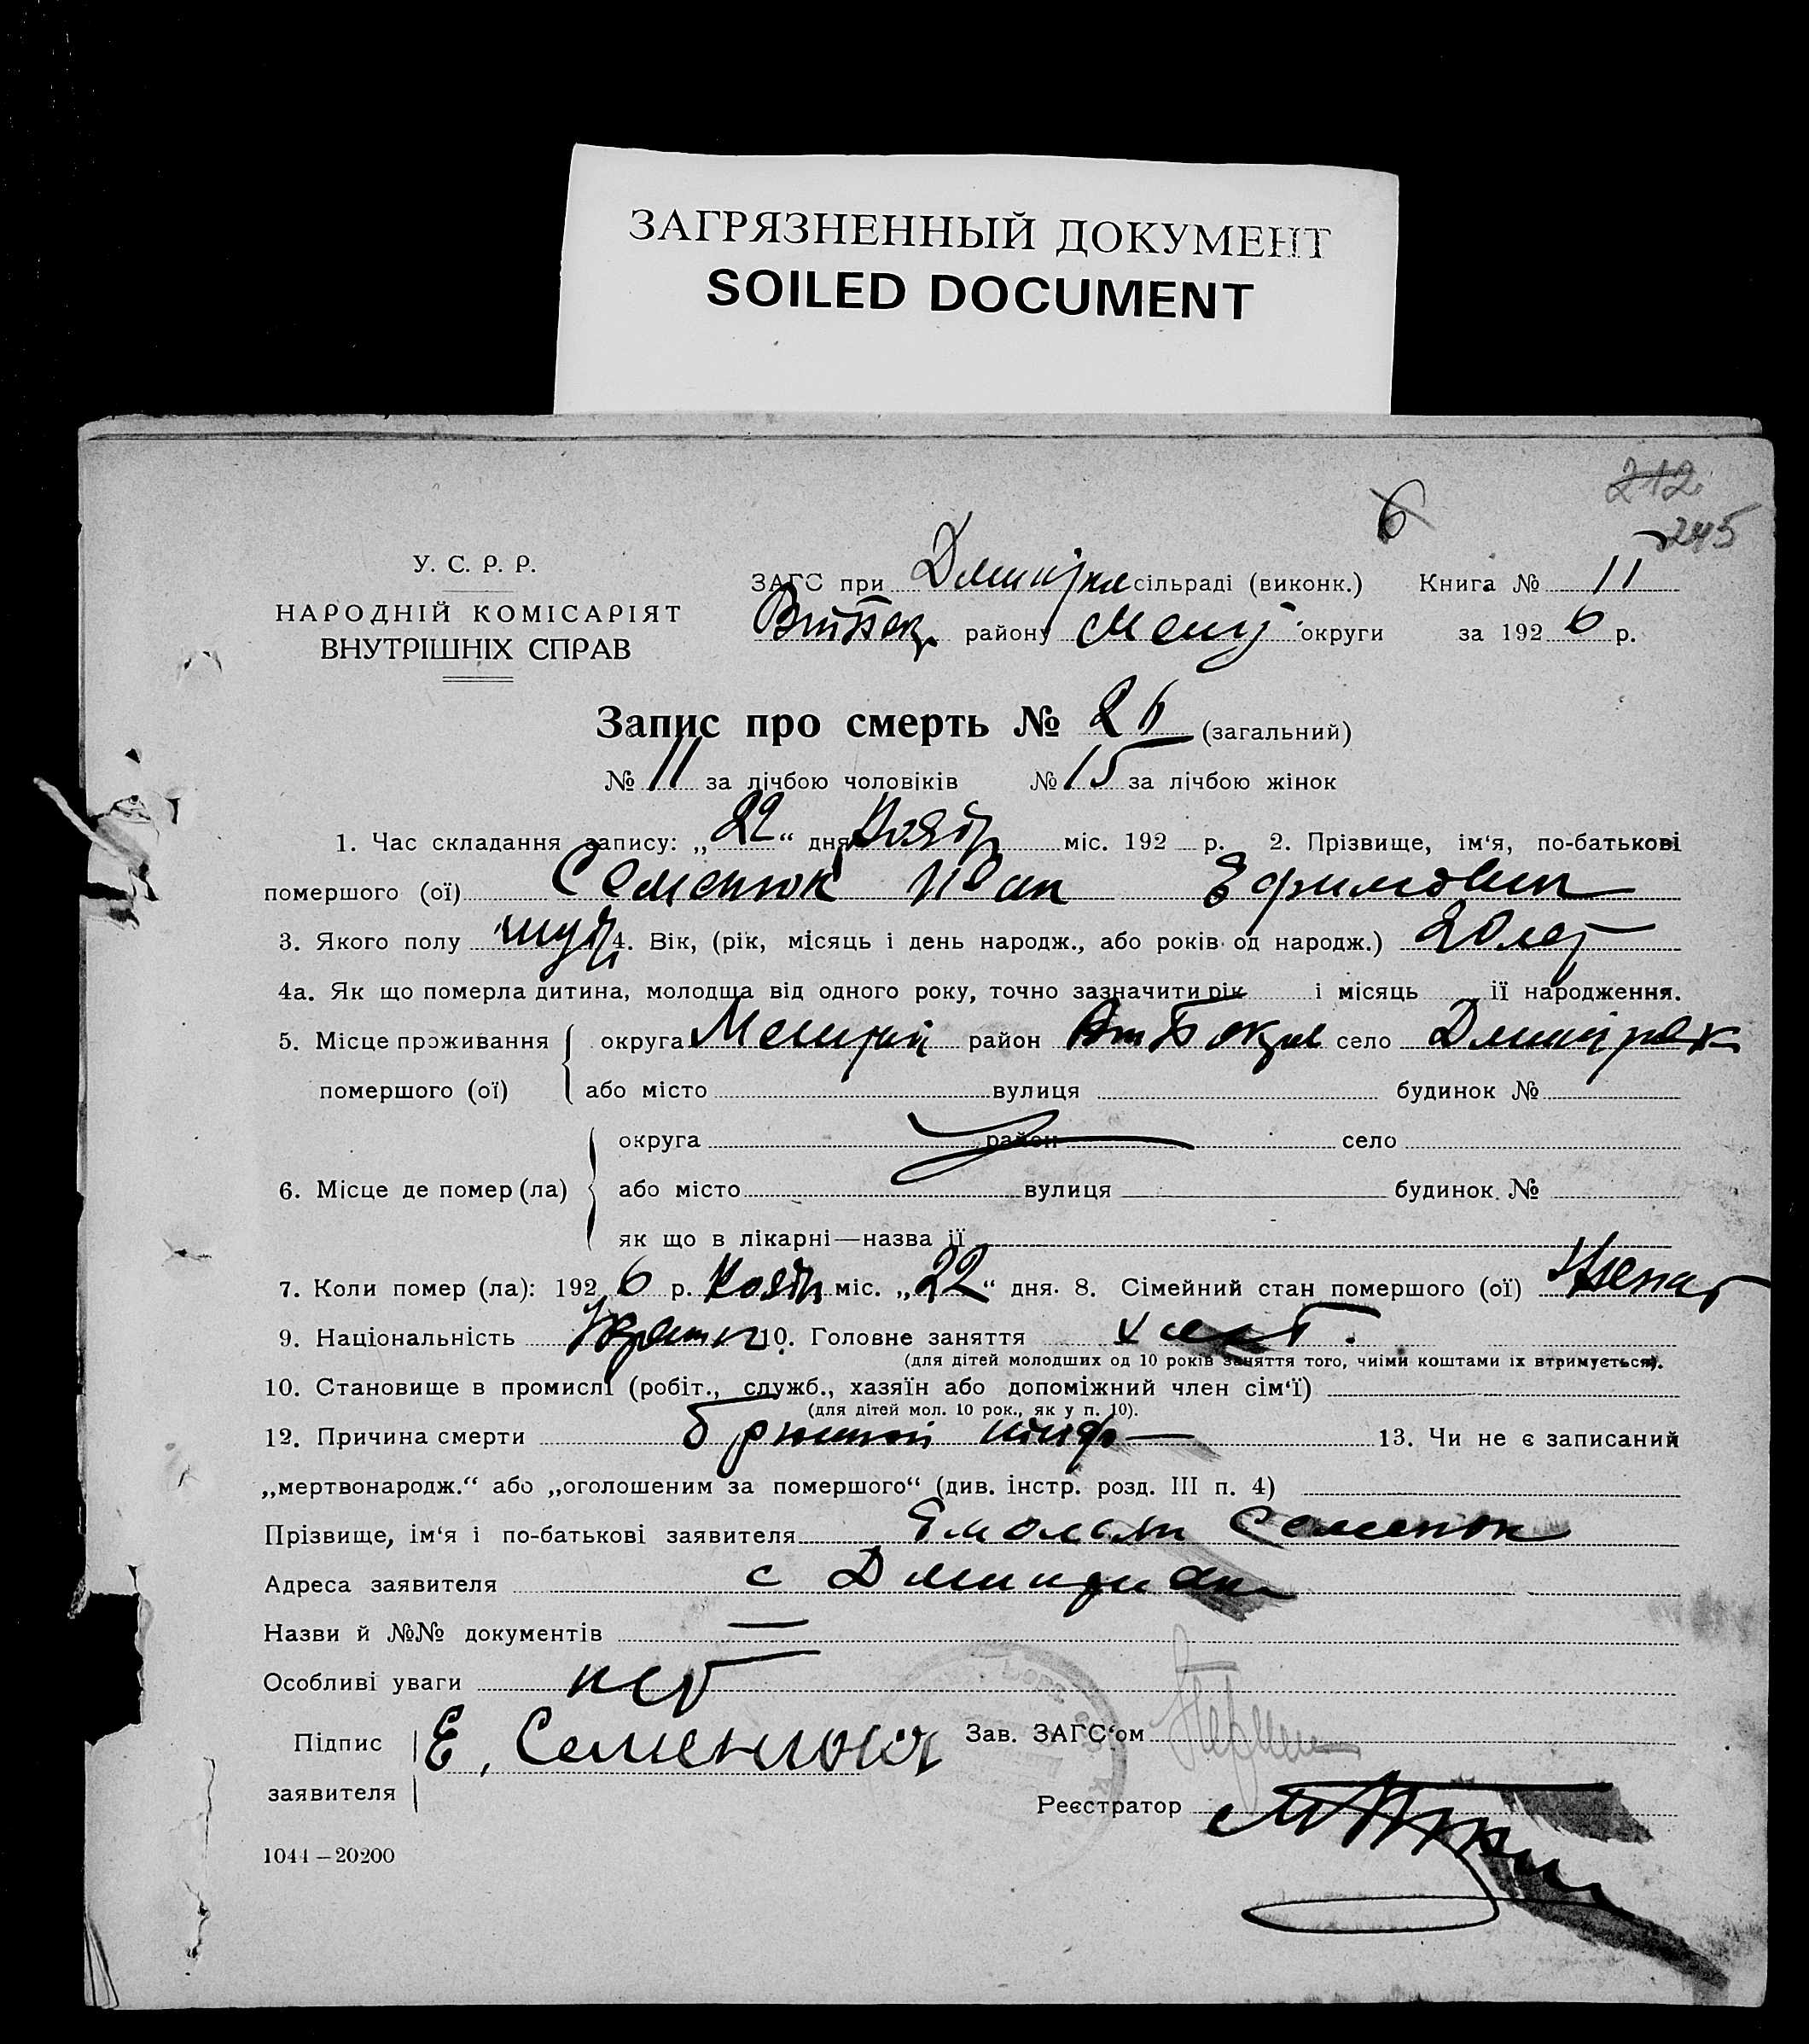 ЗАГРЯЗНЕННЫЙ ДОКУМЕНТ
SOILED DOCUMENT
212
6
245
У. С. Р. Р.
НАРОДНІЙ КОМІСАРІЯТ
ВНУТРІШНІХ СПРАВ
ЗАГС при сільраді (виконк.) Книга № 11
району округи за 192 6 р.
Запис про смерть № 26 (загальний)
№ 11 за лічбою чоловіків № 15 за лічбою жінок
1. Час складання запису: „ 22 “ дня Ноябр міс. 192 р. 2. Прізвище, ім‘я, по-батькові
помершого (ої) Семенюк Иван Ефимович
3. Якого полу муж 4. Вік, (рік, місяць і день народж., або років од народж.) 20 лет
4а. Як що померла дитина, молодща від одного року, точно зазначити рік і місяць її народження.
5. Місце проживання округа район село
помершого (ої) або місто вулиця будинок №
округа район село
6. Місце де помер (ла) або місто вулиця будинок №
як що в лікарні—назва її
7. Коли помер (ла): 192 6 р. Ноябр міс. „ 22 “ дня. 8. Сімейний стан помершого (ої) Женат
9. Національність 10. Головне заняття
(для дітей молодших од 10 років заняття того, чиїми коштами їх втримується).
10. Становище в промислі (робіт., служб., хазяїн або допоміжний член сім‘ї)
(для дітей мол. 10 рок., як у п. 10).
12. Причина смерти брюшной тиф 13. Чи не є записаний
„мертвонародж.“ або „оголошеним за помершого“ (див. інстр. розд. III п. 4)
Прізвище, ім‘я і по-батькові заявителя Семенюк
Адреса заявителя с
Назви й №№ документів —
Особливі уваги нет
Підпис Е. Семенюк Зав. ЗАГС‘ом
заявителя
Реєстратор
1044 – 20200